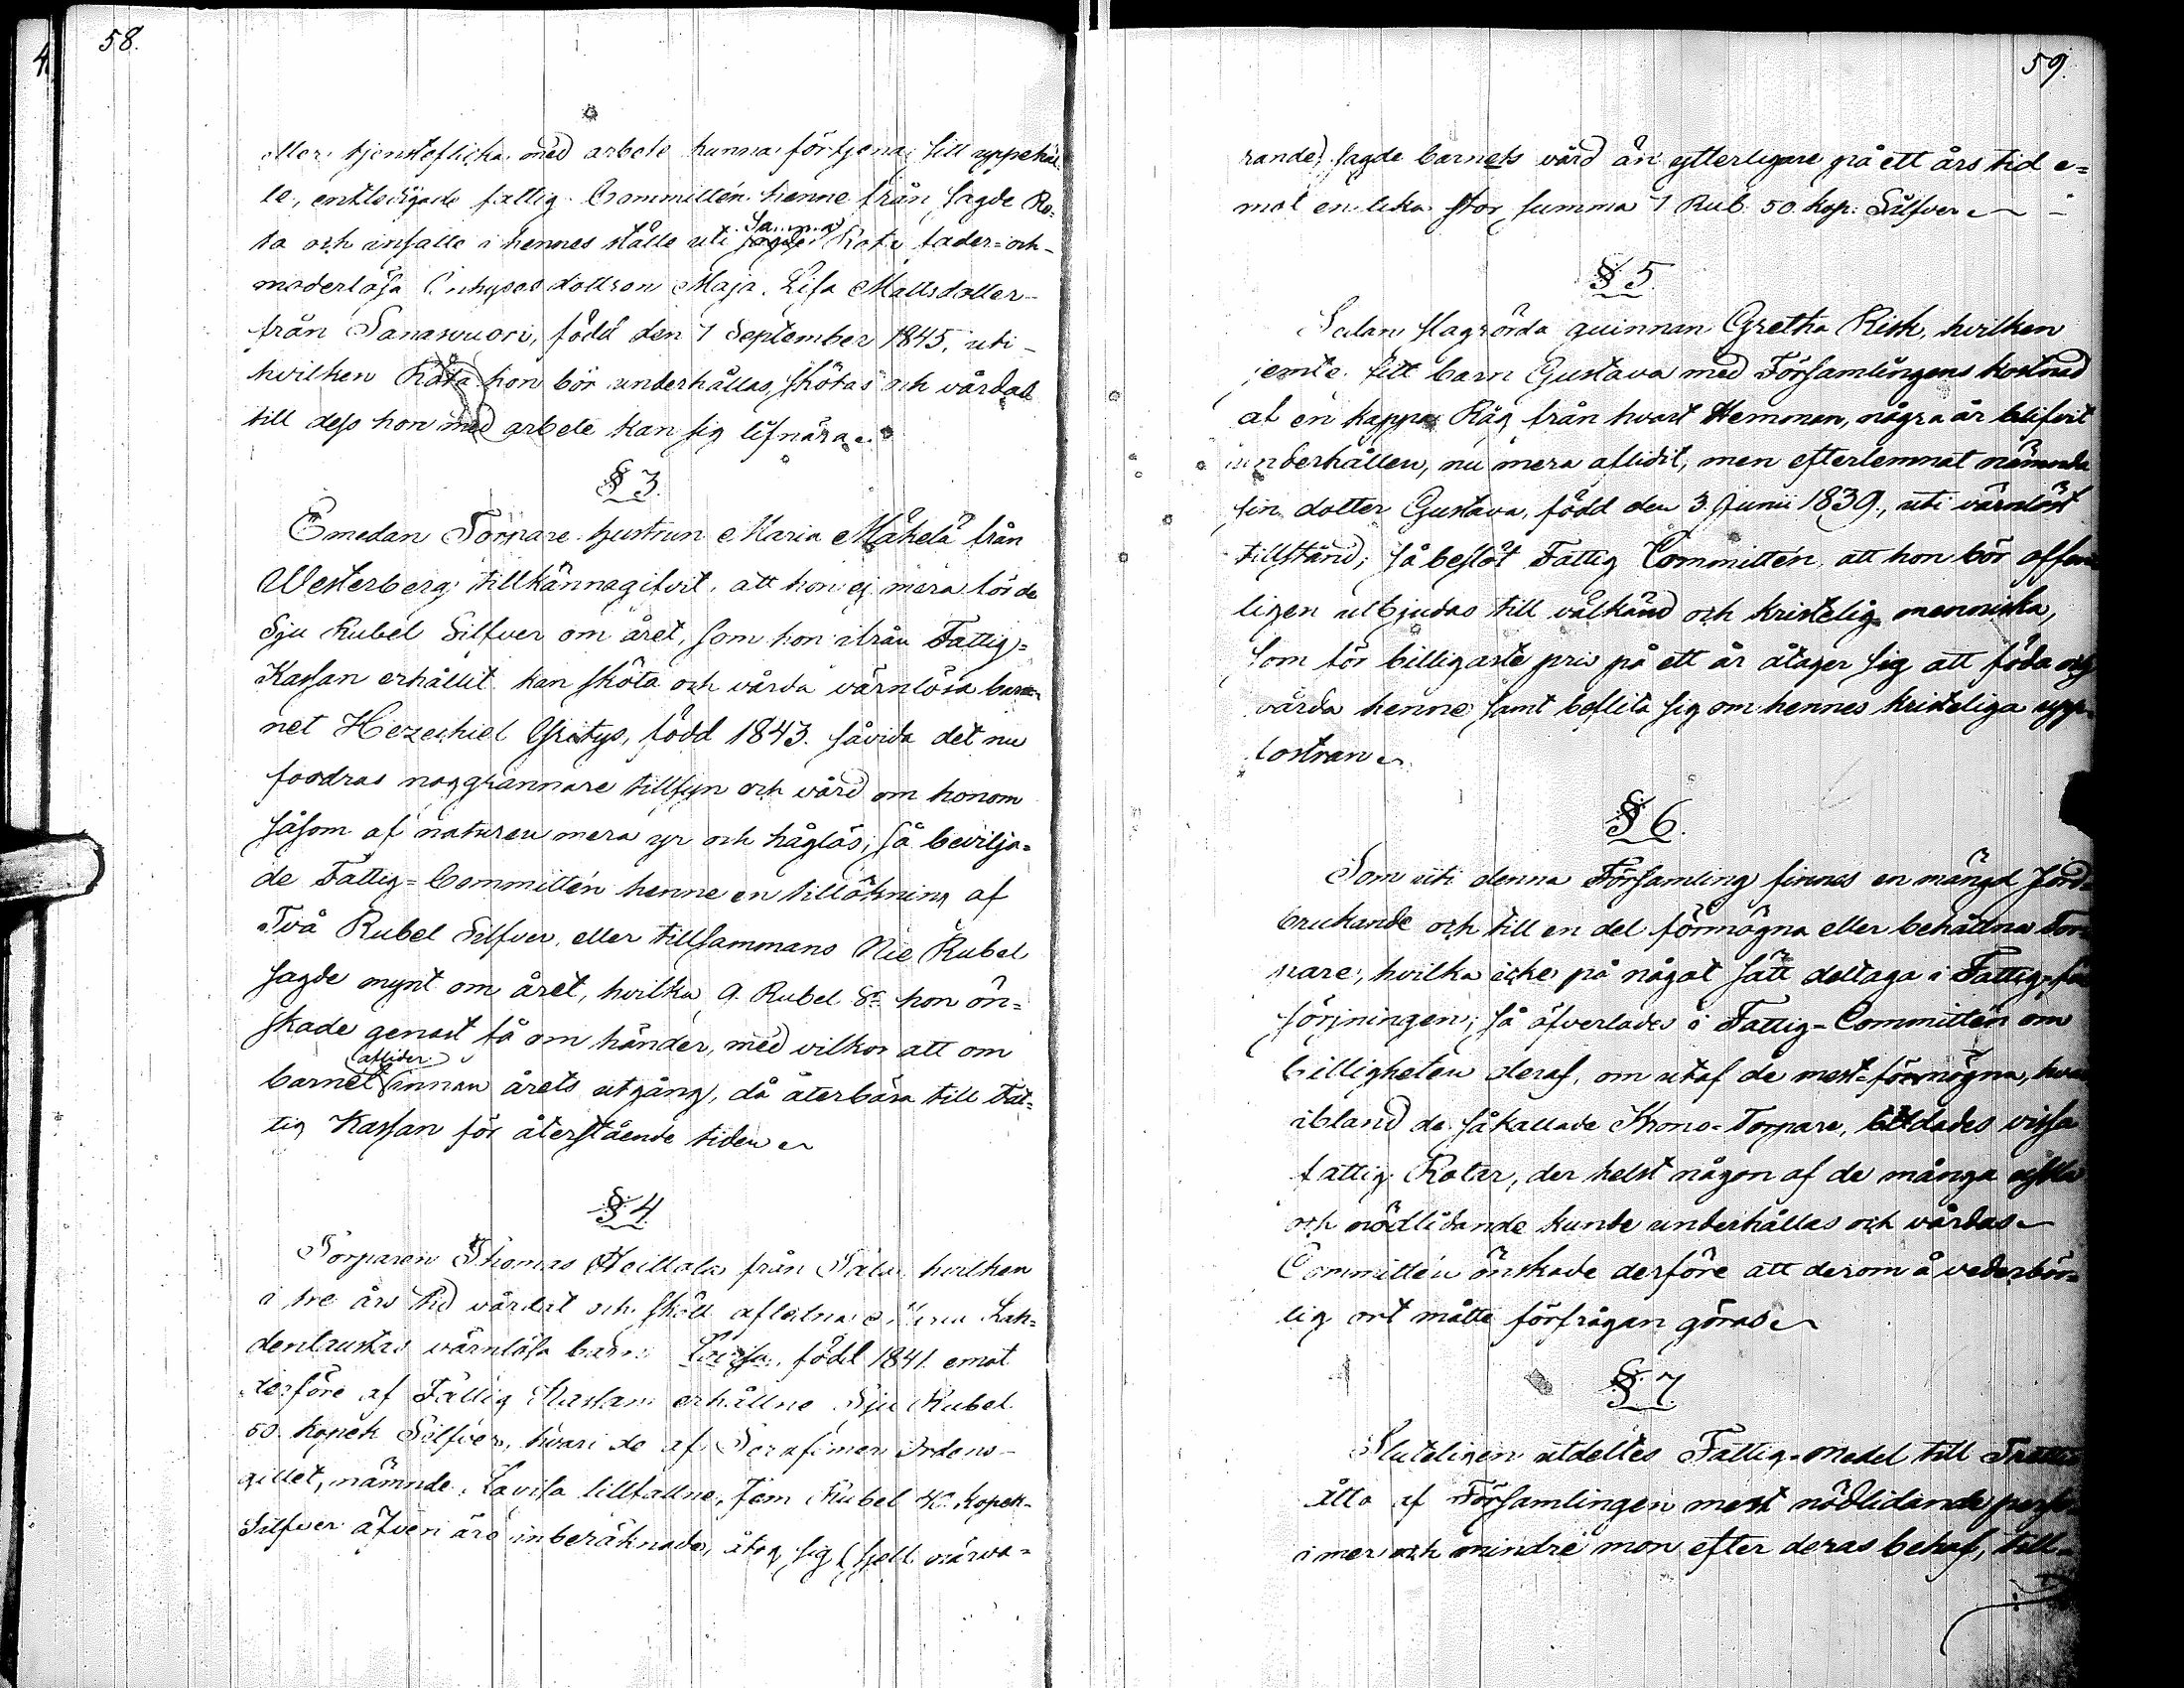 58.
eller tjensteflicka med arbete kunna förtjena sitt uppehäl-
le, entledigade fattig Committén henne från sagde Ro-
ta och insatte i hennes ställe uti samma Rote fader= och
moderlösa Inhyses dottren Maja Lisa Mattsdotter
från Sanasvuori, född den 7 September 1845, uti
hvilken Rota hon bör underhållas, skötas och vårdas
till dess hon med arbete kan sig lifnära.
§ 3.
Emedan Torpare hustrun Maria Mäkelä från
Westerberg tillkännagifvit, att hon ej mera för de
Sju Rubel Silfver om året, som hon ifrån Fattig=
Kassan erhållit kan sköta och vårda värnlösa bar-
net Hezechiel Grötys, född 1843. såvida det nu
fordras noggrannare tillsyn och vård om honom
såsom af naturen mera yr och håglös; så bevilja=
de Fattig=Committén henne en tillökning af
Två Rubel Silfver, eller tillsammans Nie Rubel
sagde mynt om året, hvilka 9 Rubel Sr hon ön=
skade genast få om händer, med vilkor att om
barnet aflider innan årets utgång, då återbära till Fat=
tig Kassan för återstående tiden
§ 4
Torparen Thomas Heittala från Salu hvilken
i tre års tid vårdat och skött aflidna Lah=
denlaustas värnlösa barn Lovisa, född 1841 emot
derföre af Fattig Kassan erhållne Sju Rubel
50 kopek Silfver, hvari de af Serafimer Ordens
gillet, nämnde Lovisa tillfallne, Fem Rubel 40 Kopek
Silfver äfven äro inberäknade, åtog sig sjelf närva=
59.
rande, sagde barnets vård än ytterligare på ett års tid e=
mot en lika stor summa 7 Rub. 50 kop: Silfver
§ 5.
Sedan slagrörda quinnan Gretha Risk, hvilken
jemte sitt barn Gustava med Församlingens kostnad
af en kappe Råg från hvart Hemman, några år blifvit
underhållen, nu mera aflidit, men efterlemnat nämnda
sin dotter Gustava, född den 3 Junii 1839., uti värnlöst
tillstånd; så beslöt Fattig Committén, att hon bör offent-
ligen utbjudas till välkänd och kristelig menniska,
som för billigaste pris på ett år åtager sig att föda och
vårda henne samt beflita sig om hennes kristeliga upp-
fostran
§ 6.
Som uti denna Församling finnes en mängd Jord-
brukande och till en del förmögna eller behållna Tor-
pare, hvilka icke på något sätt deltaga i Fattig-för
sörjningen; så öfverlades i Fattig-Committén om
billigheten deraf, om utaf de mest förmögna, hvar
ibland de såkallade Krono=Torpare, bildades vissa
fattig Rotar, der helst någon af de många usla
och nödlidande kunde underhållas och vårdas
Committén önskade derföre att derom å vederbör=
lig ort måtte förfrågan göras
§ 7.
Sluteligen utdeltes Fattig-medel till
åtta af Församlingen mest nödlidande
i mer och mindre mon efter deras behof, till-